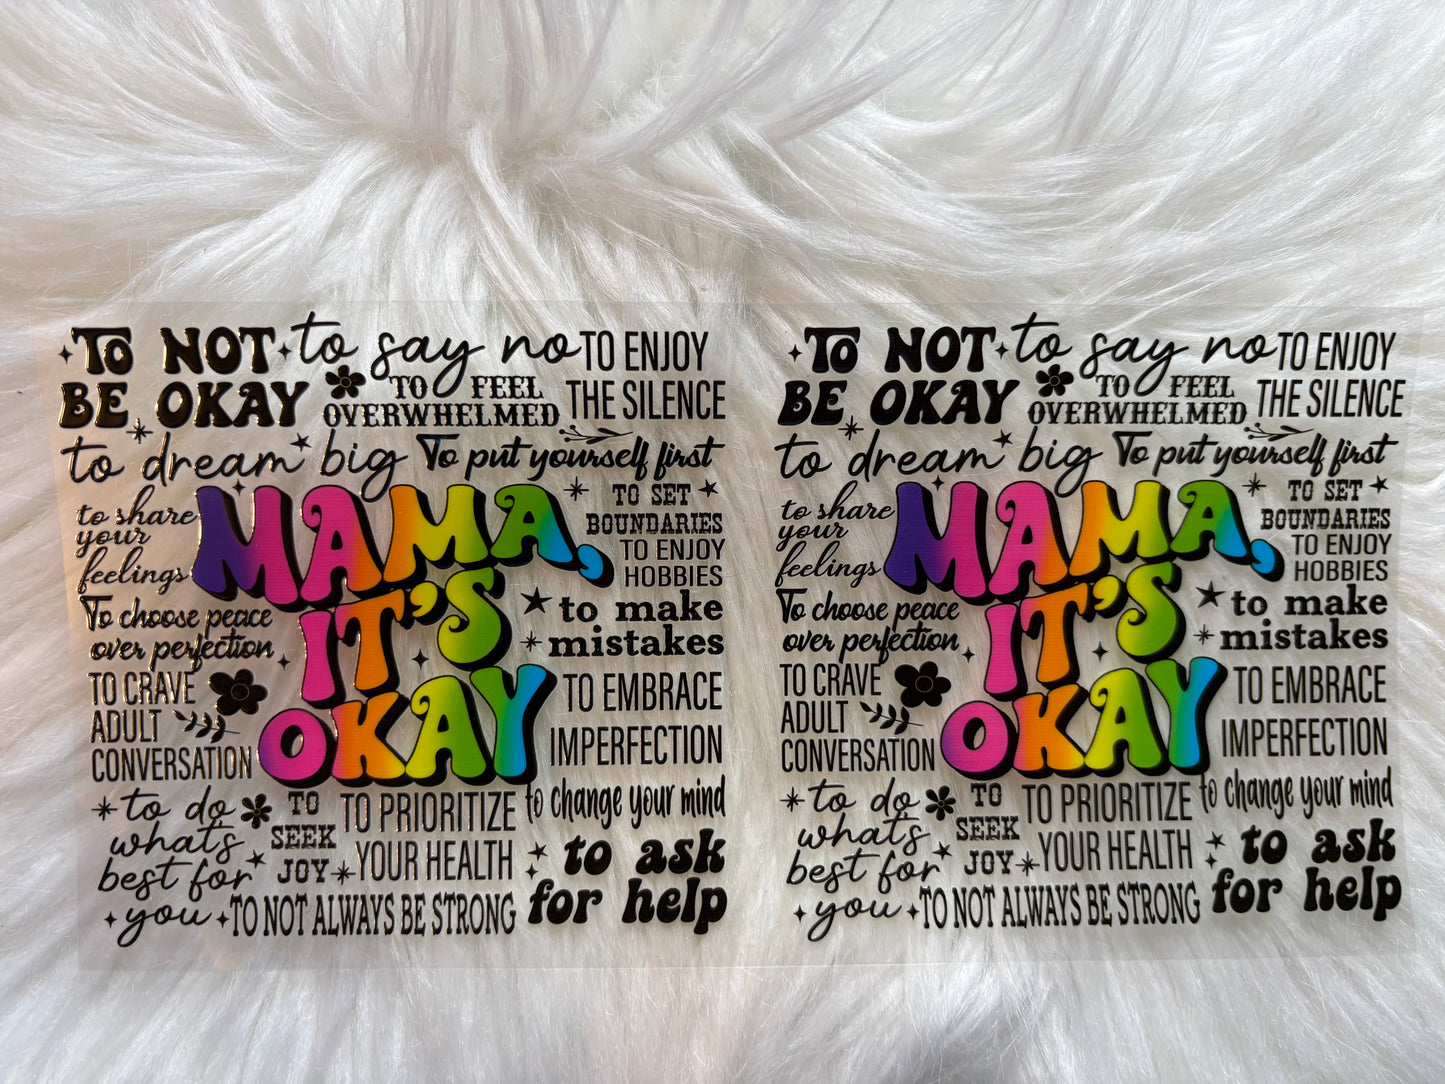 TO NOT
BE OKAY
to say no
TO FEEL
OVERWHELMED
TO ENJOY
THE SILENCE
to dream big
To put yourself first
to share
your
feelings
MAMA,
IT'S
OKAY
TO SET
BOUNDARIES
TO ENJOY
HOBBIES
To choose peace
over perfection
to make
mistakes
TO CRAVE
ADULT
CONVERSATION
TO EMBRACE
IMPERFECTION
to do
what's
best for
you
TO
SEEK
JOY
TO PRIORITIZE
YOUR HEALTH
to change your mind
to ask
for help
TO NOT ALWAYS BE STRONG
TO NOT
BE OKAY
to say no
TO FEEL
OVERWHELMED
TO ENJOY
THE SILENCE
to dream big
To put yourself first
to share
your
feelings
MAMA,
IT'S
OKAY
TO SET
BOUNDARIES
TO ENJOY
HOBBIES
To choose peace
over perfection
to make
mistakes
TO CRAVE
ADULT
CONVERSATION
TO EMBRACE
IMPERFECTION
to do
what's
best for
you
TO
SEEK
JOY
TO PRIORITIZE
YOUR HEALTH
to change your mind
to ask
for help
TO NOT ALWAYS BE STRONG